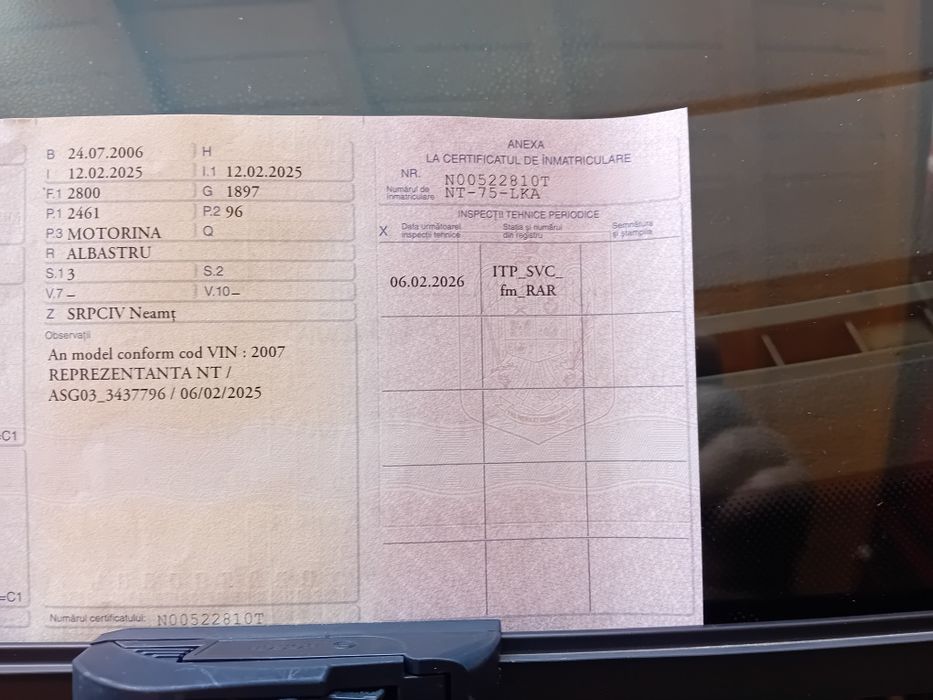 B 24.07.2006 H
I 12.02.2025 I.1 12.02.2025
F.1 2800 G 1897
P.1 2461 P.2 96
P.3 MOTORINA Q
R ALBASTRU
S.1 3 S.2
V.7 – V.10 –
Z SRPCIV Neamț
Observații
An model conform cod VIN : 2007
REPREZENTANTA NT /
ASG03_3437796 / 06/02/2025
=C1
=C1
Numărul certificatului: N00522810T
ANEXA
LA CERTIFICATUL DE ÎNMATRICULARE
NR. N00522810T
Numărul de înmatriculare NT-75-LKA
INSPECȚII TEHNICE PERIODICE
X Data următoarei inspecții tehnice Stația și numărul din registru Semnătura și ștampila
06.02.2026 ITP_SVC_
fm_RAR